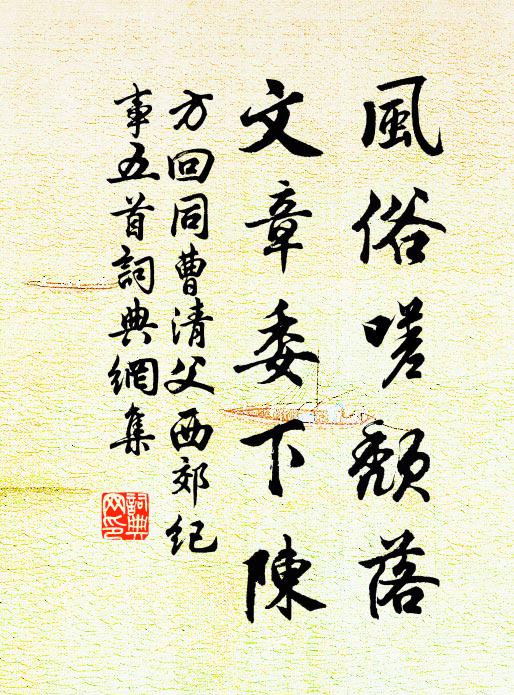 風俗嗟頹落
文章委下陳
方回同曹清父西郊紀
事五首詞典網集
詞典網印